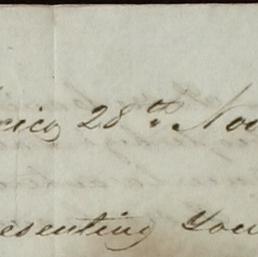 xico 28th Nov
esenting You